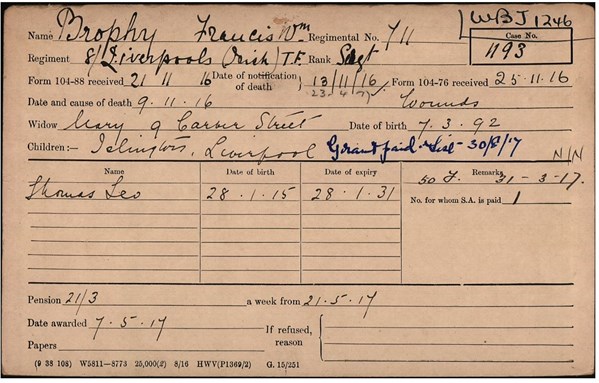 WBJ 1246
Name Brophy Francis Wm Regimental No. 711
Case No. 1193
Regiment 8/Liverpools (Irish) T.F. Rank Sergt
Form 104-88 received 21 11 16 Date of notification of death 13/11/16 Form 104-76 received 25.11.16
23. 4. 17
Date and cause of death 9.11.16 Wounds
Widow Mary 9 Carver Street Date of birth 7.3.92
Children:- Islington, Liverpool Grant paid 30/8/17 N/N
Name Date of birth Date of expiry Remarks 31-3-17.
Thomas Leo 28.1.15 28.1.31 No. for whom S.A. is paid 1
Pension 21/3 a week from 21.5.17
Date awarded 7.5.17 If refused, reason
Papers
(9 38 108) W5811—8773 25,000(2) 8/16 HWV(P1369/2) G. 15/251